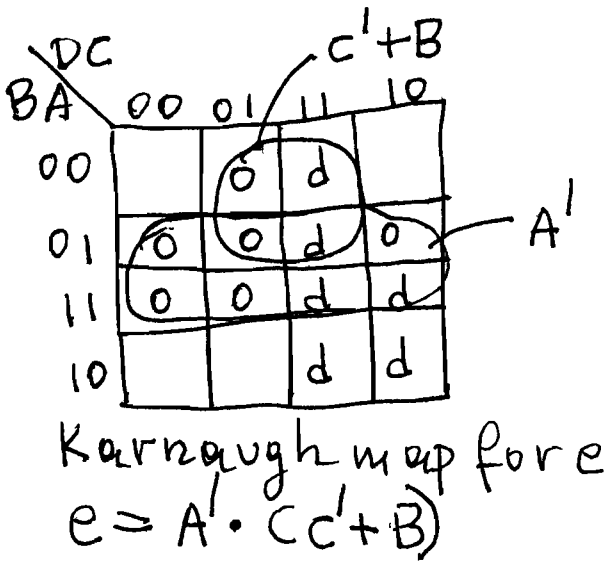 DC C'+B
BA 00 01 11 10
00 0 d
01 0 0 d 0 A'
11 0 0 d d
10 d d
Karnaugh map for e
e = A' · (C'+B)